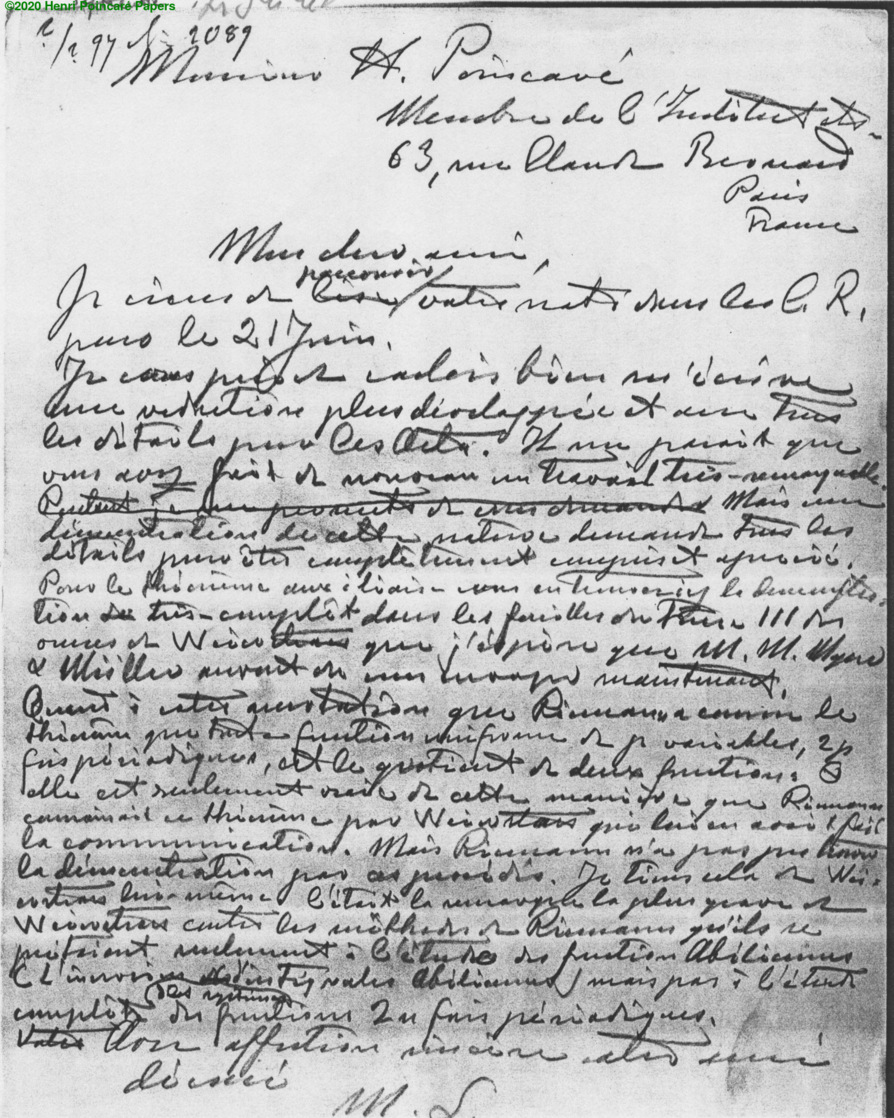 ©2020 Henri Poincaré Papers
2/7 97 2089
Monsieur H. Poincaré
Membre de l'Institut etc.
63, rue Claude Bernard
Paris
France
Mon cher ami,
parcourir
Je viens de lire votre note dans les C. R.
pour le 21 Juin.
Je vais bien m'écrire
une rédaction plus développée et avec tous
les détails pour les Acta. Il me parait que
vous avez fait de nouveau un travail très-remarquable.
Mais une
démonstration de cette nature demande tous les
détails pour être complètement compris et apprécié.
Pour le théorème la démonstra-
tion très-complèt dans les feuilles du Tome III des
œuvres de Weierstrass que j'espère que M. M. Mayer
& Müller auront maintenant.
Quant à votre annotation que Riemann a connu le
théorèm que toute fonction uniforme de p variables, 2p
fois périodiques, est le quotient de deux fonctions Θ
elle est seulement vraie de cette manière que Riemann
connaissait ce théorème par Weierstrass qui lui en avait fait
la communication. Mais Riemann n'a pas pu trouver
la démonstration par ces procédés. Je tiens cela de Wei-
erstrass lui-même. C'était la remarque la plus grave de
Weierstrass contre les méthodes de Riemann qu'ils se
prêtaient seulement à l'étude des fonction Abéliennes
(L'inversion des intégrales Abéliennes) mais pas à l'étude
des systèmes
complèt des fonctions 2n fois périodiques.
Votre affection sincère votre ami
dévoué
M. L.